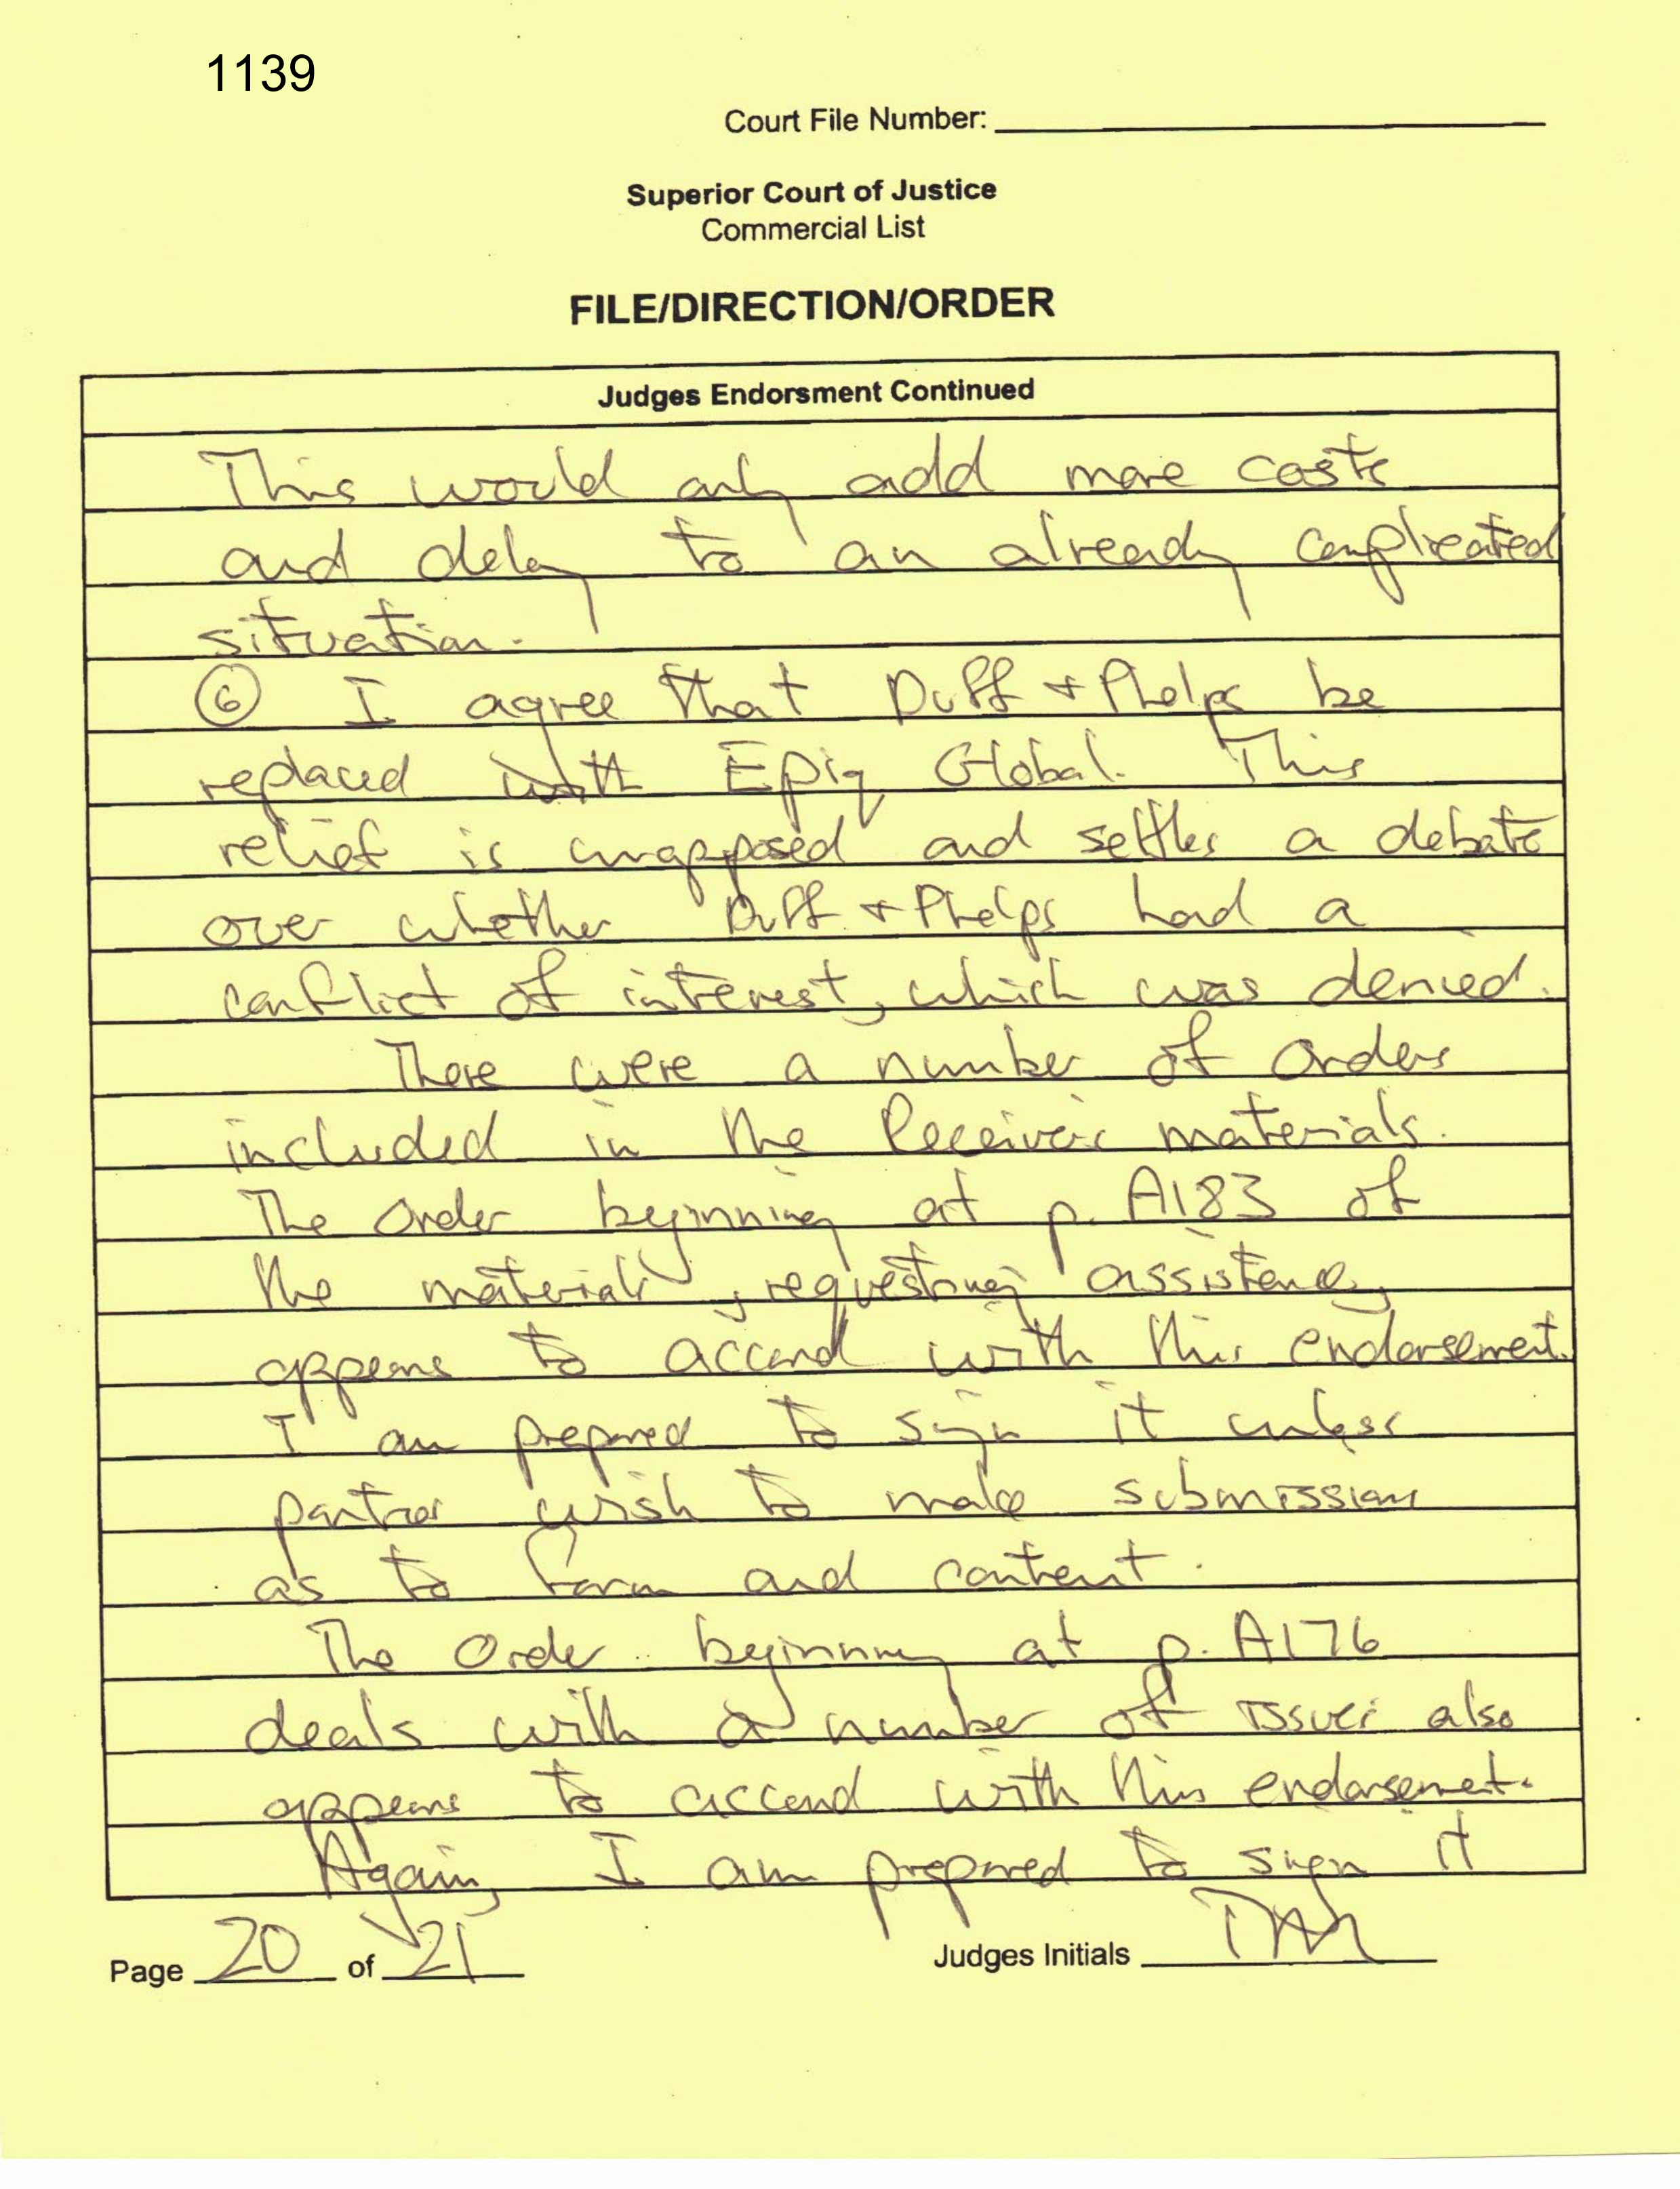 1139
Court File Number:
Superior Court of Justice
Commercial List
FILE/DIRECTION/ORDER
Judges Endorsment Continued
This would only add more costs
and delay to an already complicated
situation.
⑥ I agree that Duff + Phelps be
replaced with Epiq Global. This
relief is unopposed and settles a debate
over whether Duff + Phelps had a
conflict of interest, which was denied.
There were a number of orders
included in the Receiver's materials.
The Order beginning at p. A183 of
the materials, requesting assistance,
appears to accord with this endorsement.
I am prepared to sign it unless
parties wish to make submissions
as to form and content.
The Order beginning at p. A176
deals with a number of issues also
appears to accord with this endorsement.
Again, I am prepared to sign it
Page 20 of 21
Judges Initials